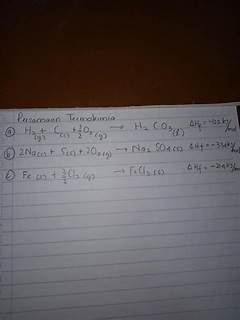 Persamaan Termokimia
a) H₂(g) + C(s) + 3/2 O₂(g) → H₂CO₃(l) ΔHf = kJ/mol
b) 2Na(s) + S(s) + 2O₂(g) → Na₂SO₄(s) ΔHf =
c) Fe(s) + 3/2 Cl₂(g) → FeCl₃(s) ΔHf =